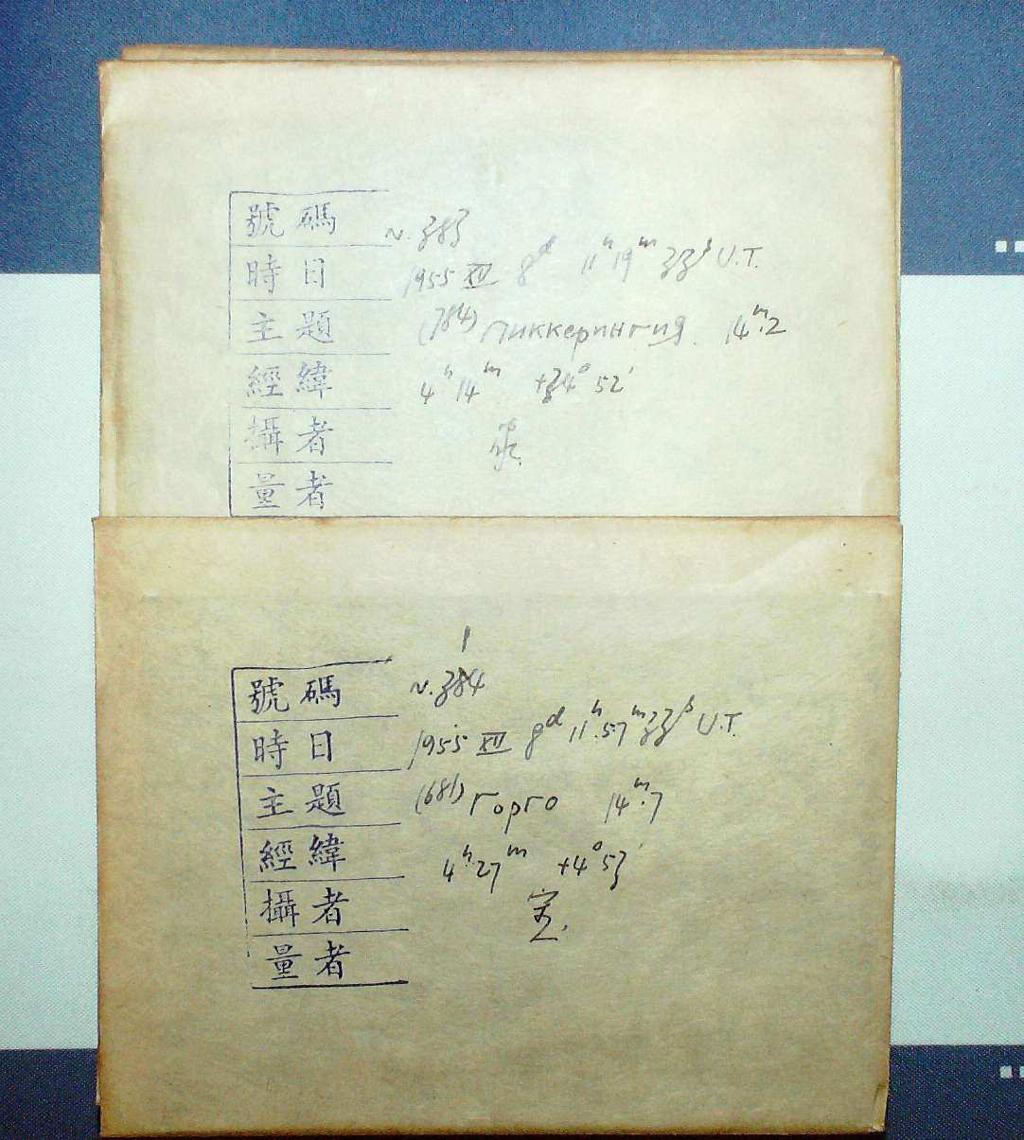 號碼 N. 383
時日 1955 XII 8ᵈ 11ʰ19ᵐ33ˢ U.T.
主題 (784) Пиккерингия 14ᵐ.2
經緯 4ʰ14ᵐ +34°52′
攝者
量者
1
號碼 N. 384
時日 1955 XII 8ᵈ 11ʰ57ᵐ33ˢ U.T.
主題 (681) Горго 14ᵐ.7
經緯 4ʰ27ᵐ +4°53′
攝者
量者